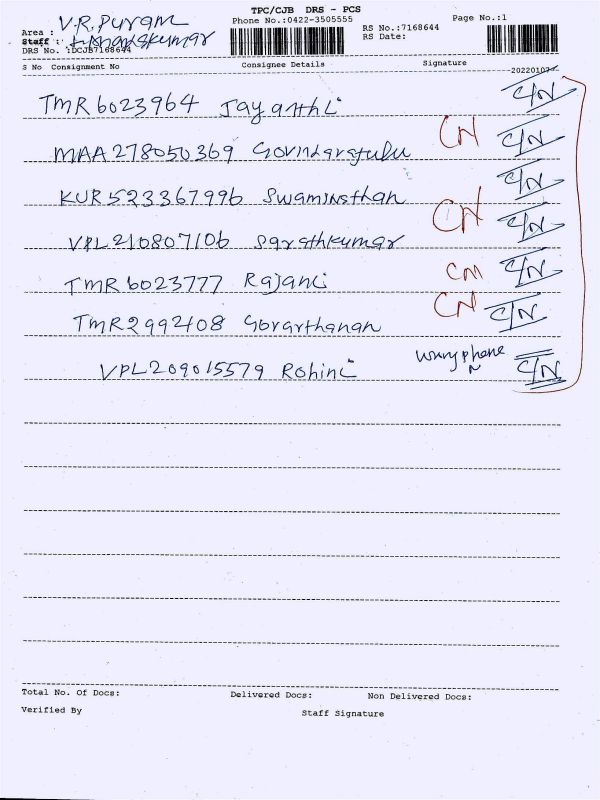 TPC/CJB DRS - PCS
Phone No.:0422-3505555
Page No.:1
RS No.:7168644
RS Date:
Area : V.R.Puram
Staff :
DRS No. :DCJB7168644
S No Consignment No
Consignee Details
Signature
20220107
TMR6023964 Jayanthi C/N
MAA278050369 Govindarajulu CN C/N
KUR523367996 Swaminathan C/N
VPL210807106 Sarathkumar CN C/N
TMR6023777 Rajani CN C/N
TMR2992408 Govarthanan CN C/N
VPL209015579 Rohini phone C/N
Total No. Of Docs:
Delivered Docs:
Non Delivered Docs:
Verified By
Staff Signature